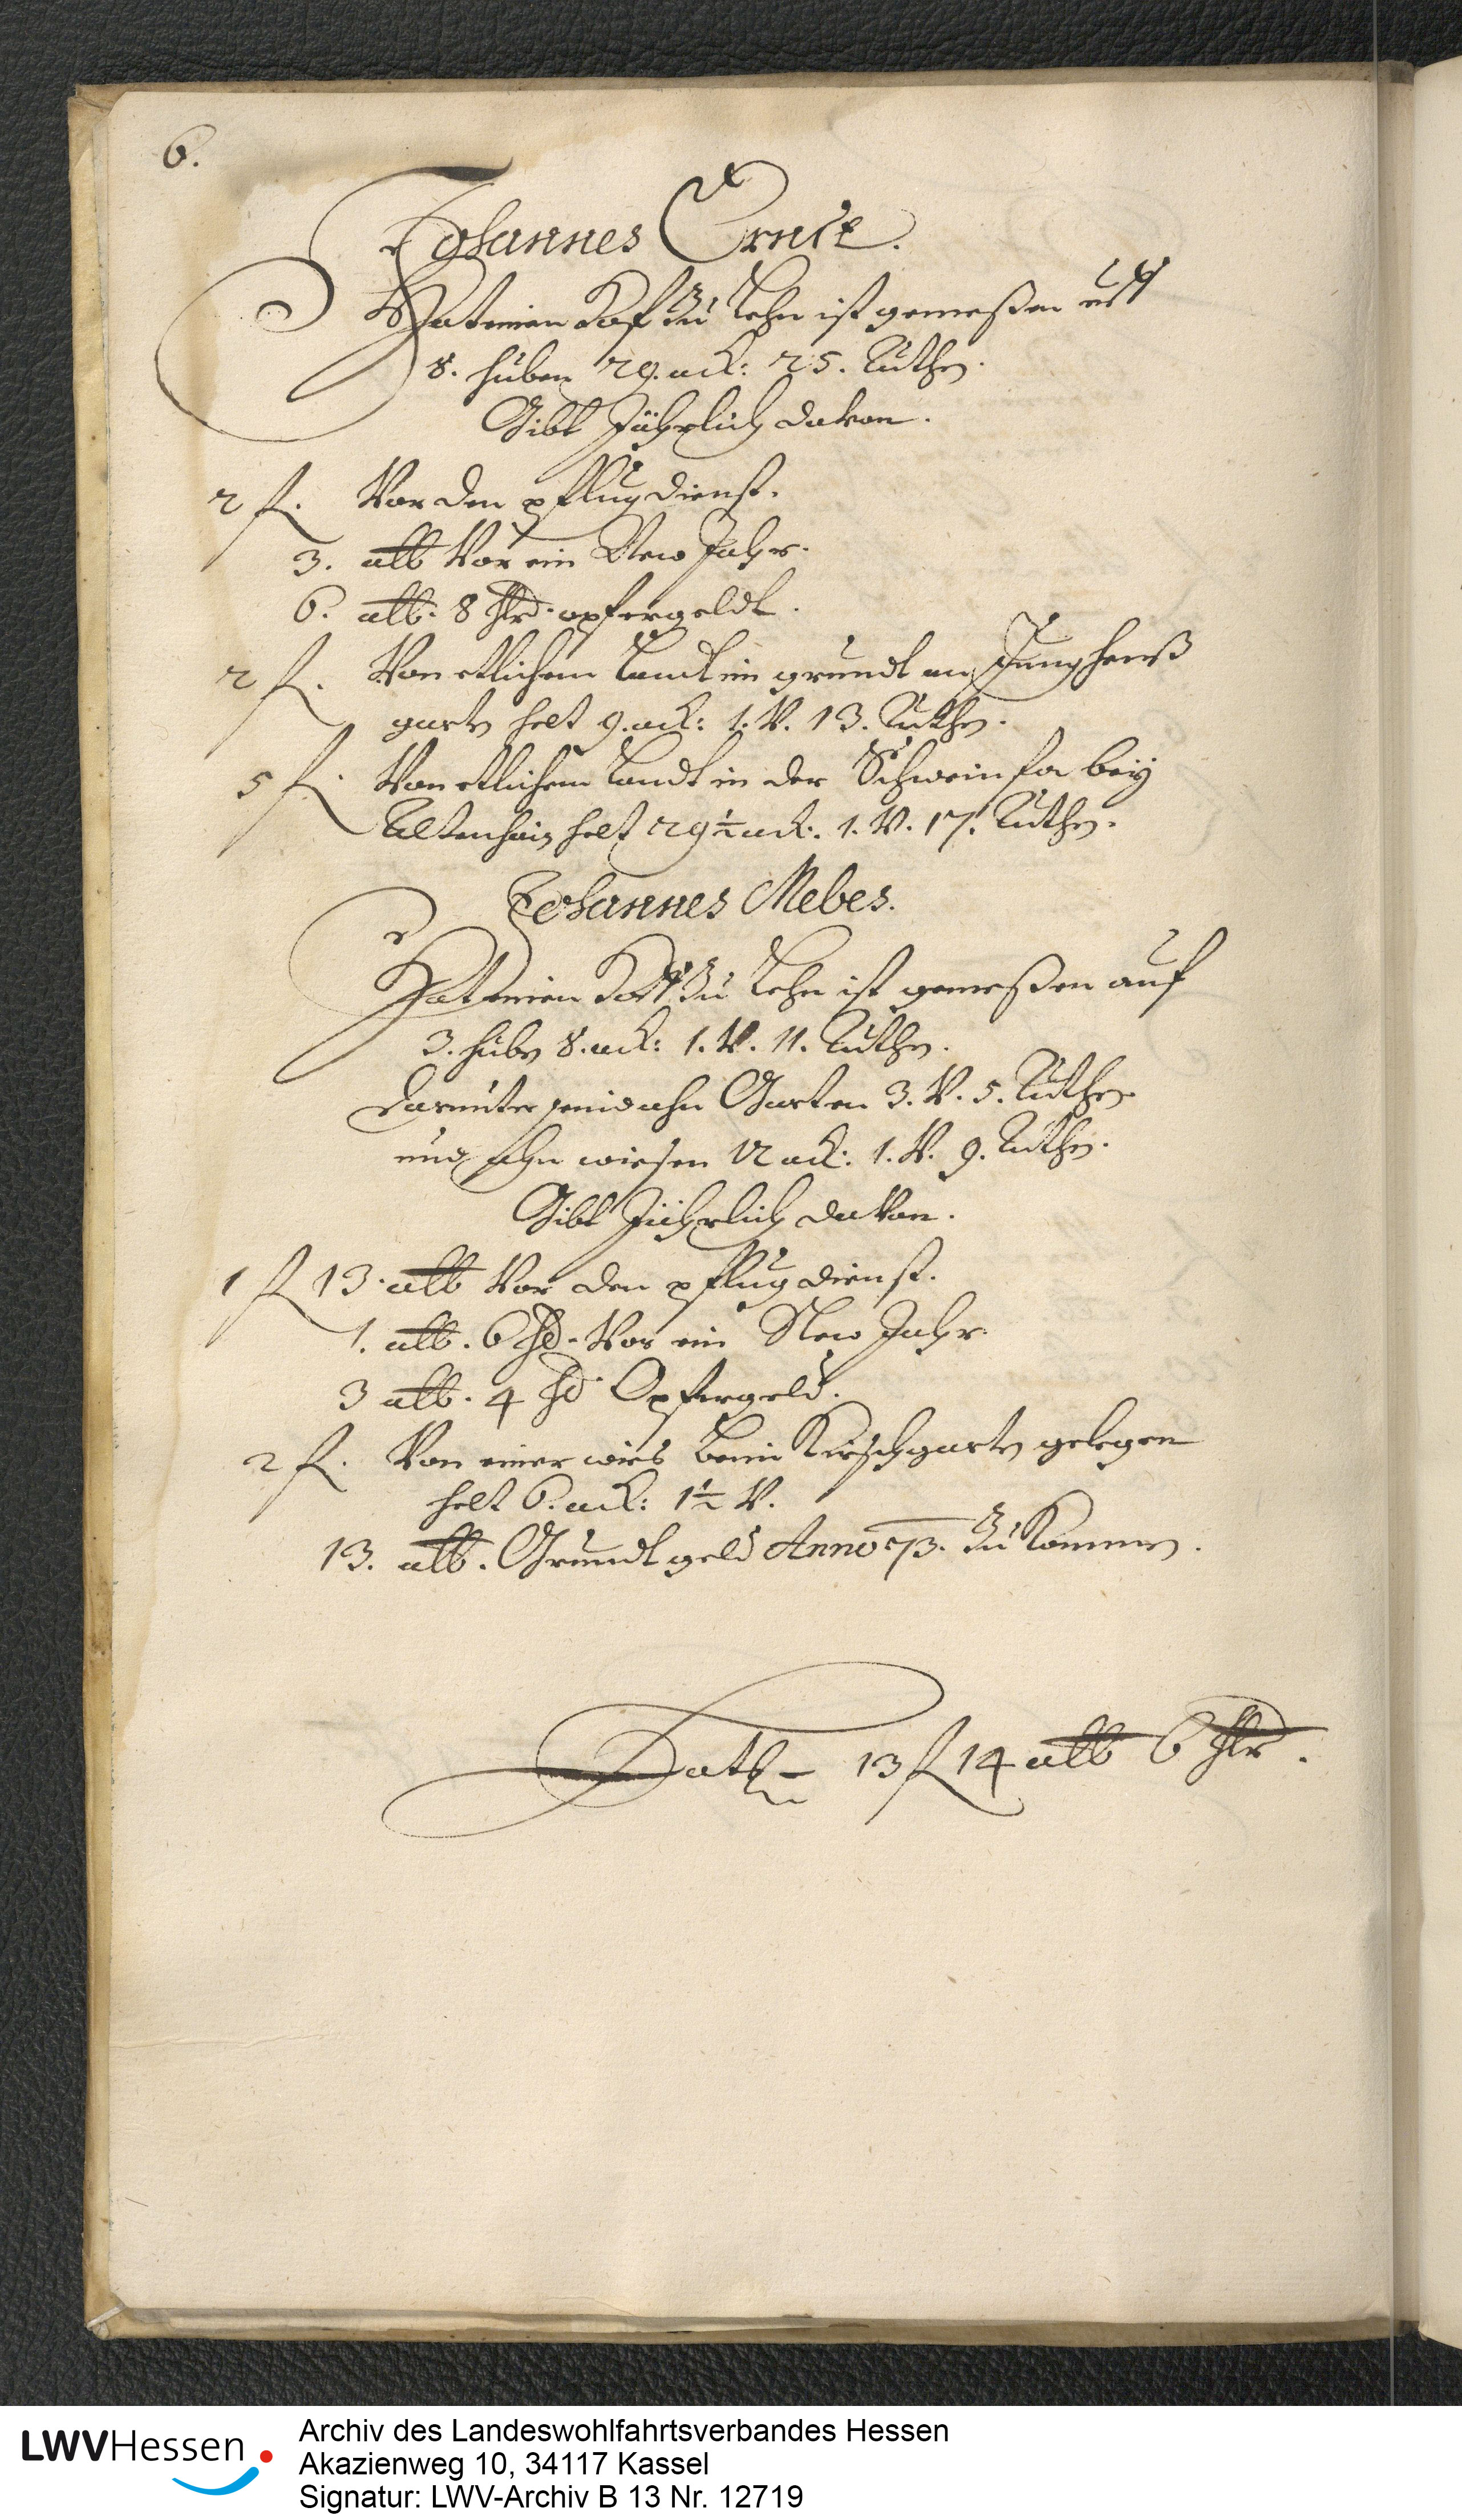 6.
Johannes Ernst.
Hat einen Hof zu Lehn ist gemeßen uff
8. huben 29. ack: 25. Ruthen.
Gibt Jährlich davon.
2 fl. Vor den pflugdienst.
3. alb Vor ein New Jahr.
6. alb. 8 hlr. opfergeldt.
2 fl. Von etlichem Landt im grundt am Jung henß
garten helt 9. ack: 1. V. 13. Ruthen.
5 fl. Von etlichem Landt in der Schweinfa bey
Altenhain helt 29½ ack: 1. V. 17. Ruthen.
Johannes Mebes.
Hat einen Hoff zu Lehn ist gemeßen auf
3. huben 8. ack: 1. V. 11. Ruthen.
Darunter seind ahn Garten 3. V. 5. Ruthen
und ahn wiesen 12 ack: 1. V. 9. Ruthen.
Gibt Jährlich davon.
1 fl 13. alb Vor den pflugdienst.
1. alb. 6 hlr. Vor ein New Jahr.
3 alb. 4 hlr. Opfergeld.
2 fl. Von einer wies beim Kirschgarten gelegen
helt 6. ack: 1½ V.
13. alb. Grundtgeld Anno 73. zu Kommen.
13 fl 14 alb 6 hlr.
LWVHessen
Archiv des Landeswohlfahrtsverbandes Hessen
Akazienweg 10, 34117 Kassel
Signatur: LWV-Archiv B 13 Nr. 12719